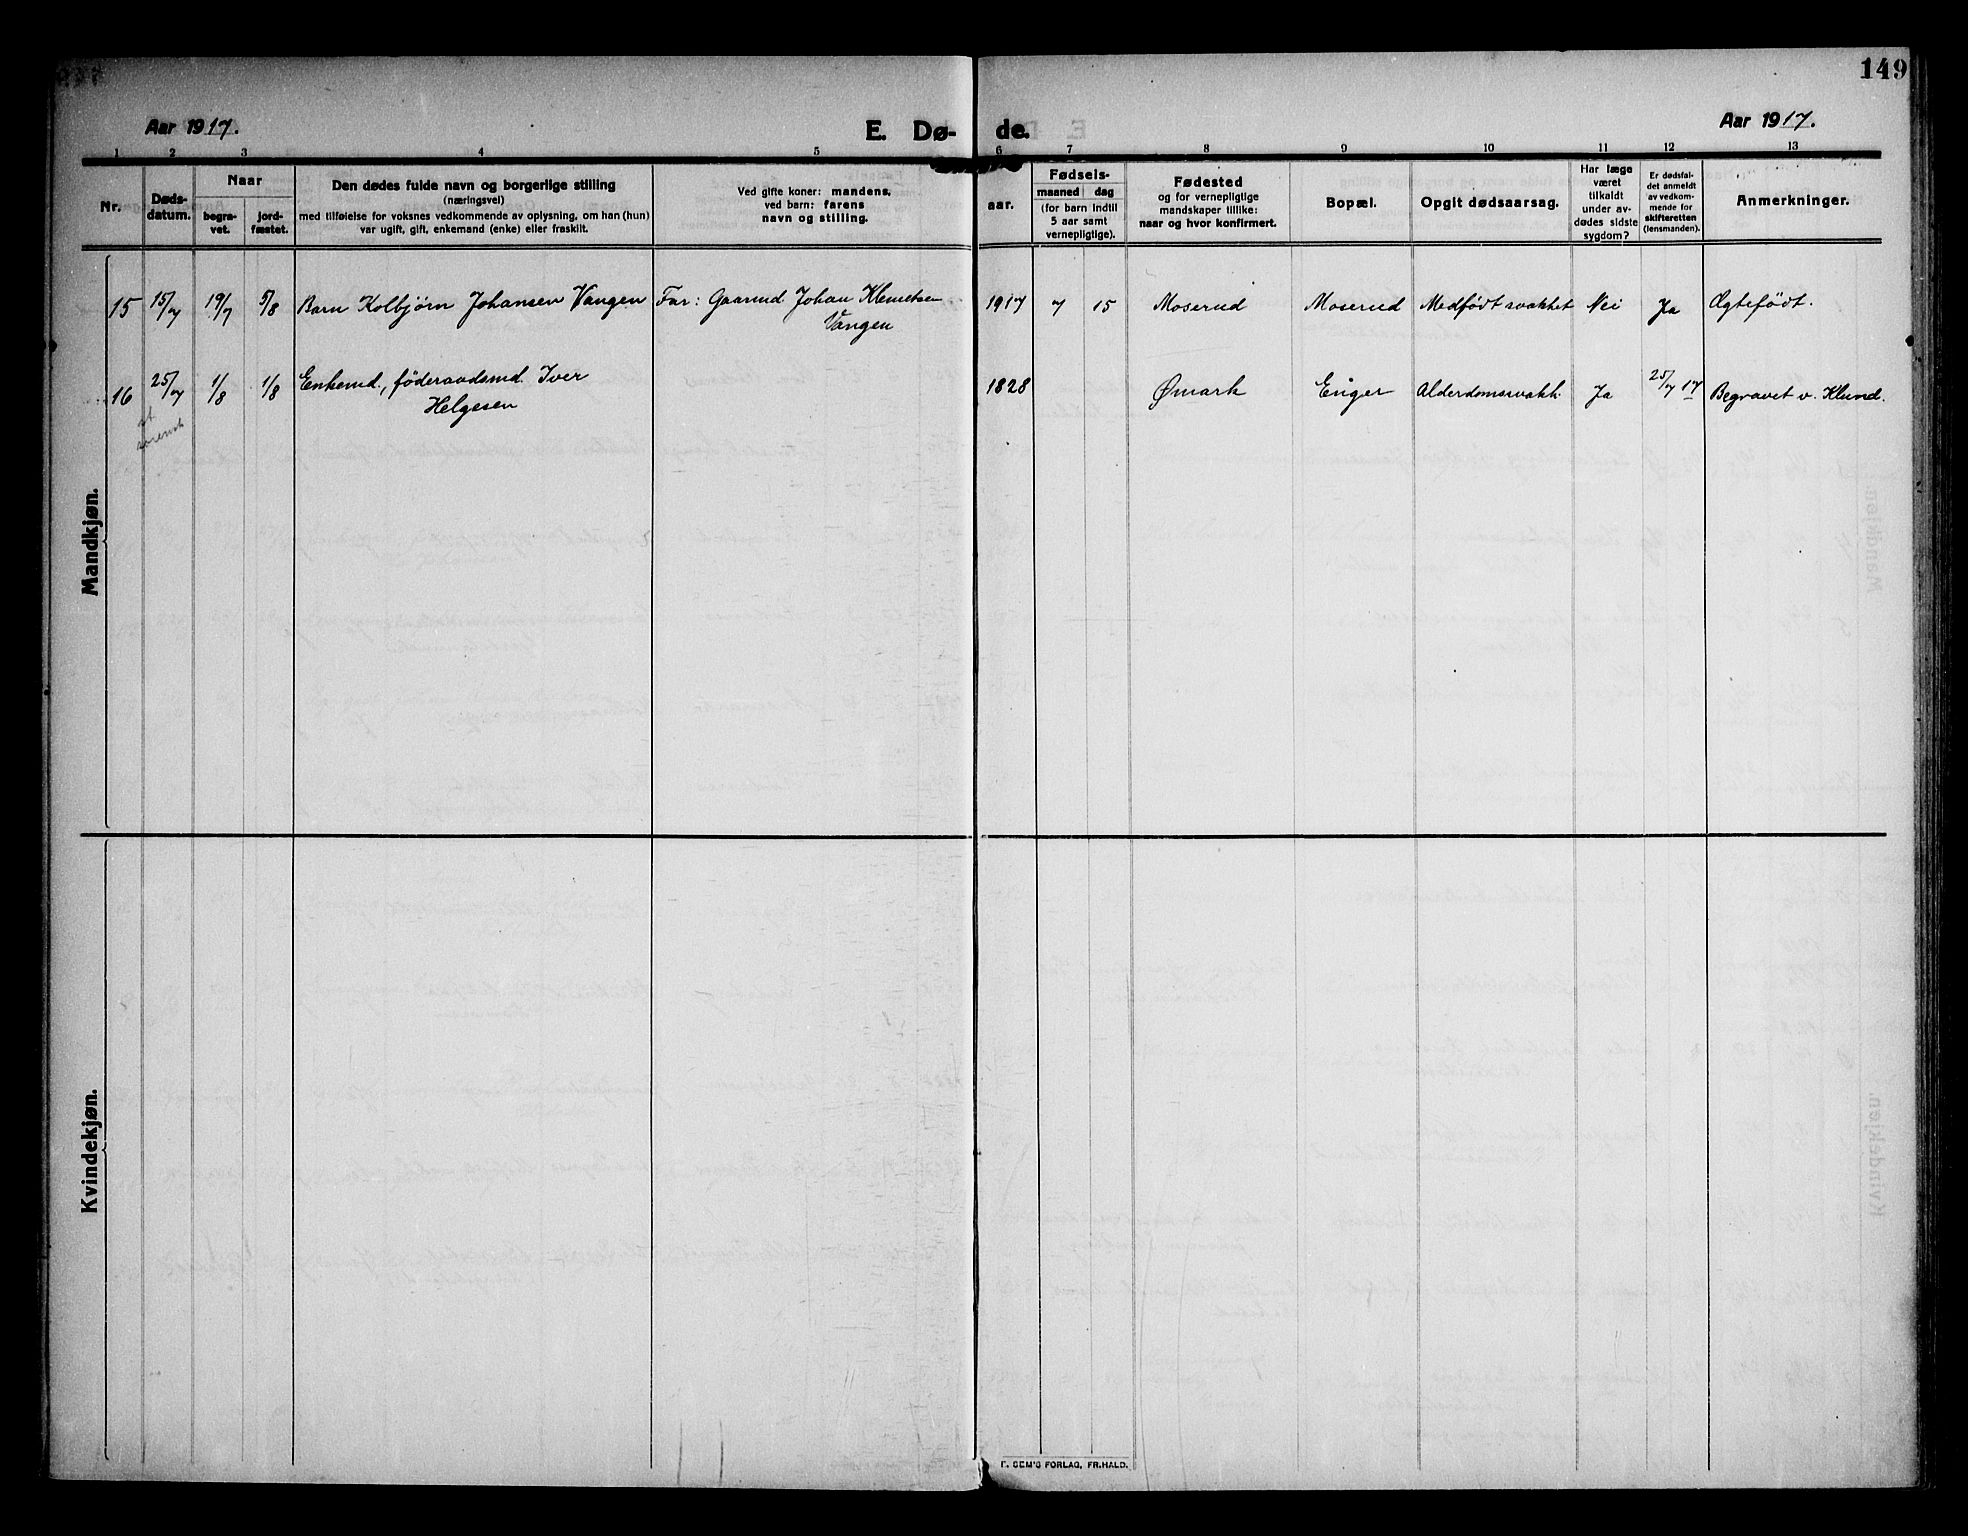 149
Aar 1917.
E. Dø-
de.
Aar 1917.
1 2 3 4 5 6 7 8 9 10 11 12 13
Nr.
Døds-
datum.
Naar
begra-
vet.
jord-
fæstet.
Den dødes fulde navn og borgerlige stilling
(næringsvei)
med tilføielse for voksnes vedkommende av oplysning, om han (hun)
var ugift, gift, enkemand (enke) eller fraskilt.
Ved gifte koner: mandens,
ved barn: farens
navn og stilling.
Fødsels-
aar.
maaned dag
(for barn indtil
5 aar samt
vernepligtige).
Fødested
og for vernepligtige
mandskaper tillike:
naar og hvor konfirmert.
Bopæl.
Opgit dødsaarsag.
Har læge
været
tilkaldt
under av-
dødes sidste
sygdom?
Er dødsfal-
det anmeldt
av vedkom-
mende for
skifteretten
(lensmanden).
Anmerkninger.
Mandkjøn.
15 15/7 19/7 5/8 Barn Kolbjørn Johansen Vangen Far: Gaarmd. Johan Klemetsen 1917 7 15 Moserud Moserud Medfødt svakhet Nei Ja Ægtefødt.
Vangen
16 25/7 1/8 1/8 Enkemd., føderaadsmd. Iver 1828 Ømark Enger Alderdomssvakh. Ja 25/7 17 Begravet v. Klund.
Helgesen
Kvindekjøn.
F. BEM'S FORLAG, FR.HALD.